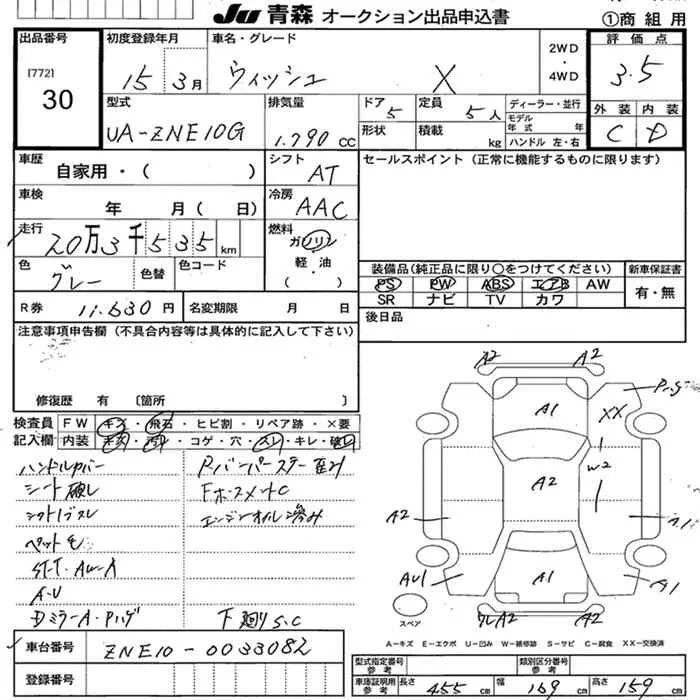 Ju 青森 オークション出品申込書 ①商組用
出品番号 初度登録年月 車名・グレード 評価点
[772] 15 3月 ウィッシュ X 2WD・4WD 3.5
30
型式 排気量 ドア 定員 ディーラー・並行 外装 内装
UA-ZNE10G 1.790 CC 5 5人 モデル年式 年 C D
形状 積載 kg ハンドル 左・右
車歴 シフト セールスポイント (正常に機能するものに限ります)
自家用・( ) AT
車検 冷房
年 月( 日) AAC
走行 燃料
20万3千535km ガソリン
軽・油
( )
色 色替 色コード 装備品(純正品に限り○をつけてください) 新車保証書
グレー PS PW ABS エアB AW 有・無
SR ナビ TV カワ
R券 11.630円 名変期限 月 日 後日品
注意事項申告欄 (不具合内容等は具体的に記入して下さい)
修復歴 有 〔箇所 〕
検査員 FW キズ・飛石・ヒビ割・リペア跡・×要
記入欄 内装 キズ・汚れ・コゲ・穴・スレ・キレ・破れ
ハンドルカバー
シート破レ
シフトノブスレ
ペット毛
A-U
DミラーA・Pハゲ
エンジンオイル滲み
下廻りS.C
A2 A2
Pハゲ
A1 XX
W2
A2
A2
A1
A1
A2 A2
スペア
A-キズ E-エクボ U-凹み W-補修跡 S-サビ C-腐食 XX-交換済
車台番号 ZNE10-0033082
登録番号
型式指定番号 参考 類別区分番号 参考
車庫証明用 参考 長さ 455 cm 幅 169 cm 高さ 159 cm